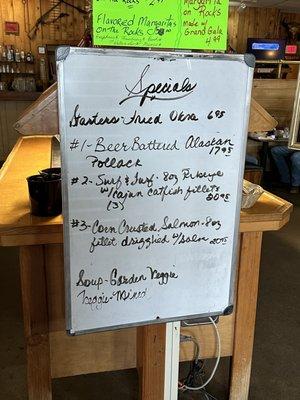 Flavored Margaritas
on the Rocks
on the Rocks
Made w/
Grand Gala
4.99
Specials
Starters-Fried Okra 6.95
#1-Beer Battered Alaskan
Pollack 17.95
#2-Surf & Turf-8oz Ribeye
w/Cajun Catfish fillets
(3) 20.95
#3-Corn Crusted Salmon-8oz
fillet drizzled w/
Soup-Garden Veggie
Veggie-Mixed